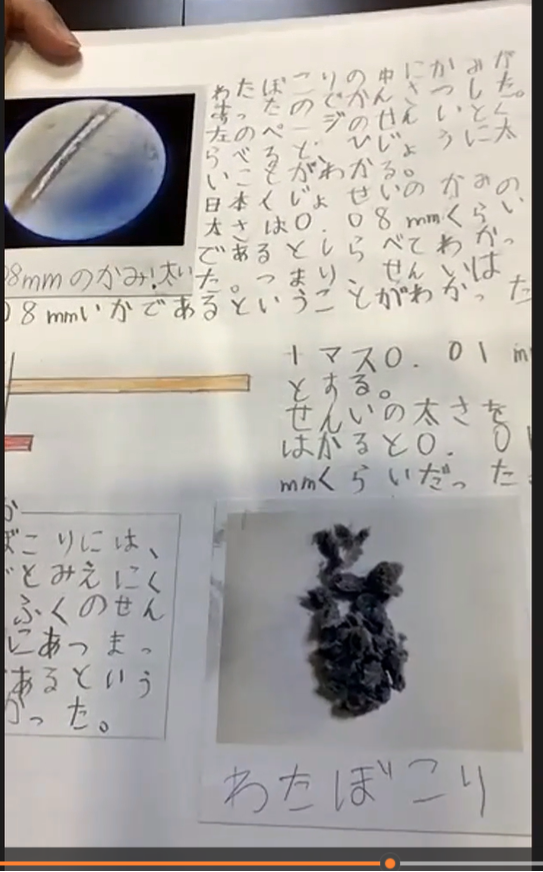 わたぼこりの中にかみが
かんさつした。
左のページのせんいとく
らべると、ひじょうに太
いことがわかる。
日本人じょせいのかみの
太さは0.08mmくらい
であるとしらべてわかっ
た。つまり、せんいは
08mmいかであるということがわかった
08mmのかみ!太い
1マス0.01m
とする。
せんいの太さを
はかると0.01
mmくらいだった。
か
ぼこりには、
どみえにく
ふくのせん
にあつまっ
あるという
かった。
わたぼこり